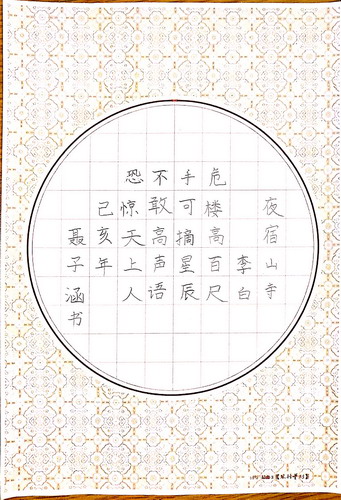 夜宿山寺
李白
危楼高百尺
手可摘星辰
不敢高声语
恐惊天上人
己亥年
聂子涵书